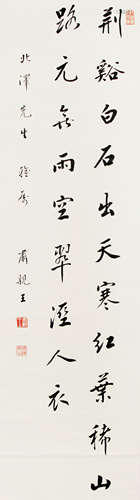 荆谿白石出天寒红葉稀山
路元無雨空翠溼人衣
北澤先生雅属
肅親王